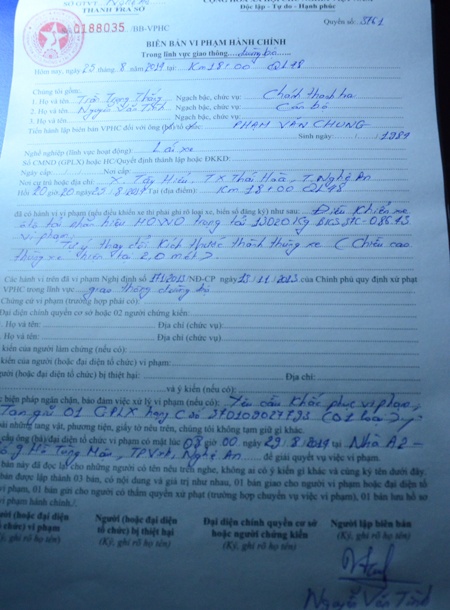 SỞ GTVT
THANH TRA SỞ
Độc lập - Tự do - Hạnh phúc
0188035 /BB-VPHC
Quyển số: 3761
BIÊN BẢN VI PHẠM HÀNH CHÍNH
Trong lĩnh vực giao thông đường bộ
Hôm nay, ngày 25 tháng 8 năm 2019 tại: Km 18+00 QL48
Chúng tôi gồm:
1. Họ và tên: Trần Trọng Thắng Ngạch bậc, chức vụ: Chánh thanh tra
2. Họ và tên: Nguyễn Văn Tĩnh Ngạch bậc, chức vụ: Cán bộ
3. Họ và tên: Ngạch bậc, chức vụ:
Tiến hành lập biên bản VPHC đối với ông (bà)/tổ chức: PHẠM VĂN CHUNG
Sinh ngày: / / 1989
Nghề nghiệp (lĩnh vực hoạt động) Lái xe
Số CMND (GPLX) hoặc HC/Quyết định thành lập hoặc ĐKKD:
Ngày cấp / / Nơi cấp
Nơi cư trú hoặc địa chỉ: X. Tây Hiếu, TX Thái Hoà, T. Nghệ An
Hồi 20 giờ 20 ngày 25/8/2019 Tại (địa điểm): Km 18+00 QL48
đã có hành vi vi phạm (nếu điều khiển xe thì phải ghi rõ loại xe, biển số đăng ký) như sau: Điều khiển xe
ôtô tải nhãn hiệu HOWO trọng tải 13020 Kg BKS
vi phạm:
Tự ý thay đổi kích thước thành thùng xe (chiều cao
thùng xe
Các hành vi trên đã vi phạm Nghị định số 171/2013/NĐ-CP ngày 13/11/2013 của Chính phủ quy định xử phạt
VPHC trong lĩnh vực giao thông đường bộ
Chứng cứ vi phạm (trường hợp phải có):
Đại diện chính quyền cơ sở hoặc 02 người chứng kiến:
. Họ và tên: Địa chỉ (chức vụ):
. Họ và tên: Địa chỉ (chức vụ):
kiến của người làm chứng (nếu có):
kiến của người (hoặc đại diện tổ chức) vi phạm:
người (hoặc đại diện tổ chức) bị thiệt hại: Địa chỉ:
và ý kiến (nếu có):
biện pháp ngăn chặn, bảo đảm việc xử lý vi phạm (nếu có): Yêu cầu khắc phục vi phạm,
Tạm giữ 01 GPLX hạng C số
ngoài những tang vật, phương tiện, giấy tờ nêu trên, chúng tôi không tạm giữ gì khác.
cầu ông (bà)/đại diện tổ chức vi phạm có mặt lúc 08 giờ 00 ngày 29/8/2019 tại Nhà A2-
Hồ Tùng Mậu, TP Vinh, Nghệ An để giải quyết vụ việc vi phạm.
bản này đã đọc lại cho những người có tên nêu trên nghe, không ai có ý kiến gì khác và cùng ký tên dưới đây.
bản được lập thành 03 bản, có nội dung và giá trị như nhau, 01 bản giao cho người vi phạm hoặc đại diện tổ
vi phạm, 01 bản gửi cho người có thẩm quyền xử phạt (trường hợp chuyển vụ việc vi phạm), 01 bản lưu hồ sơ
vi phạm hành chính./.
(hoặc đại diện Người (hoặc đại diện Đại diện chính quyền cơ sở Người lập biên bản
chức) vi phạm tổ chức) bị thiệt hại hoặc người chứng kiến (Ký, ghi rõ họ tên)
ghi rõ họ tên) (Ký, ghi rõ họ tên) (Ký, ghi rõ họ tên)
Nguyễn Văn Tĩnh